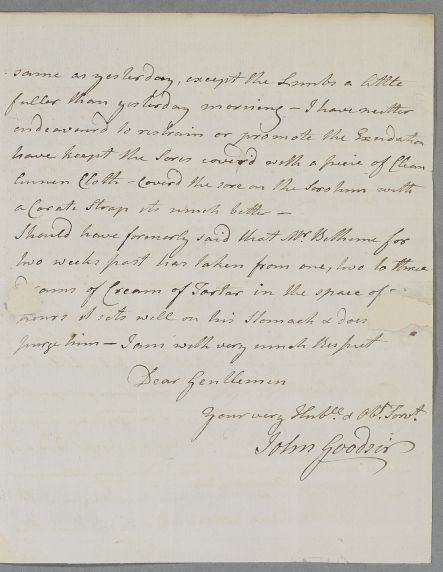 same as yesterday, except the Limbs a little
fuller than yesterday morning – I have neither
endeavourd to restrain or promote the Exudation
have keept the Sores coverd with a piece of Clean
Linnen Cloth – Coverd the sore on the Scrotum with
a Carate Strap its much better –
Should have formerly said that Mr. Belhune for
two weeks past has taken from one, two to three
of Cream of Tartar in the space of
hours it sets well on his Stomach & does
purge him – I am with very much Respect
Dear Gentlemen
Your very Huble. & Obt. Servt.
John Goodsir